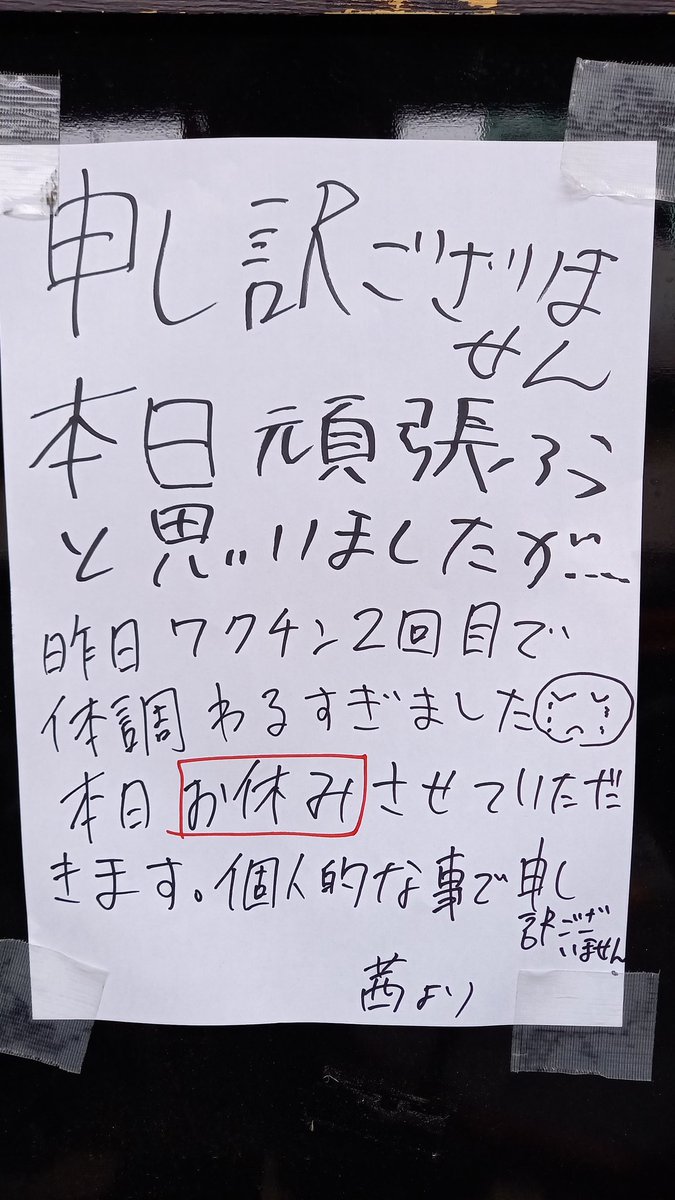 申し訳ございま
せん
本日頑張ろう
と思いましたが…
昨日ワクチン2回目で
体調わるすぎました
本日お休みさせていただ
きます。個人的な事で申し
訳ござ
いません
茜より